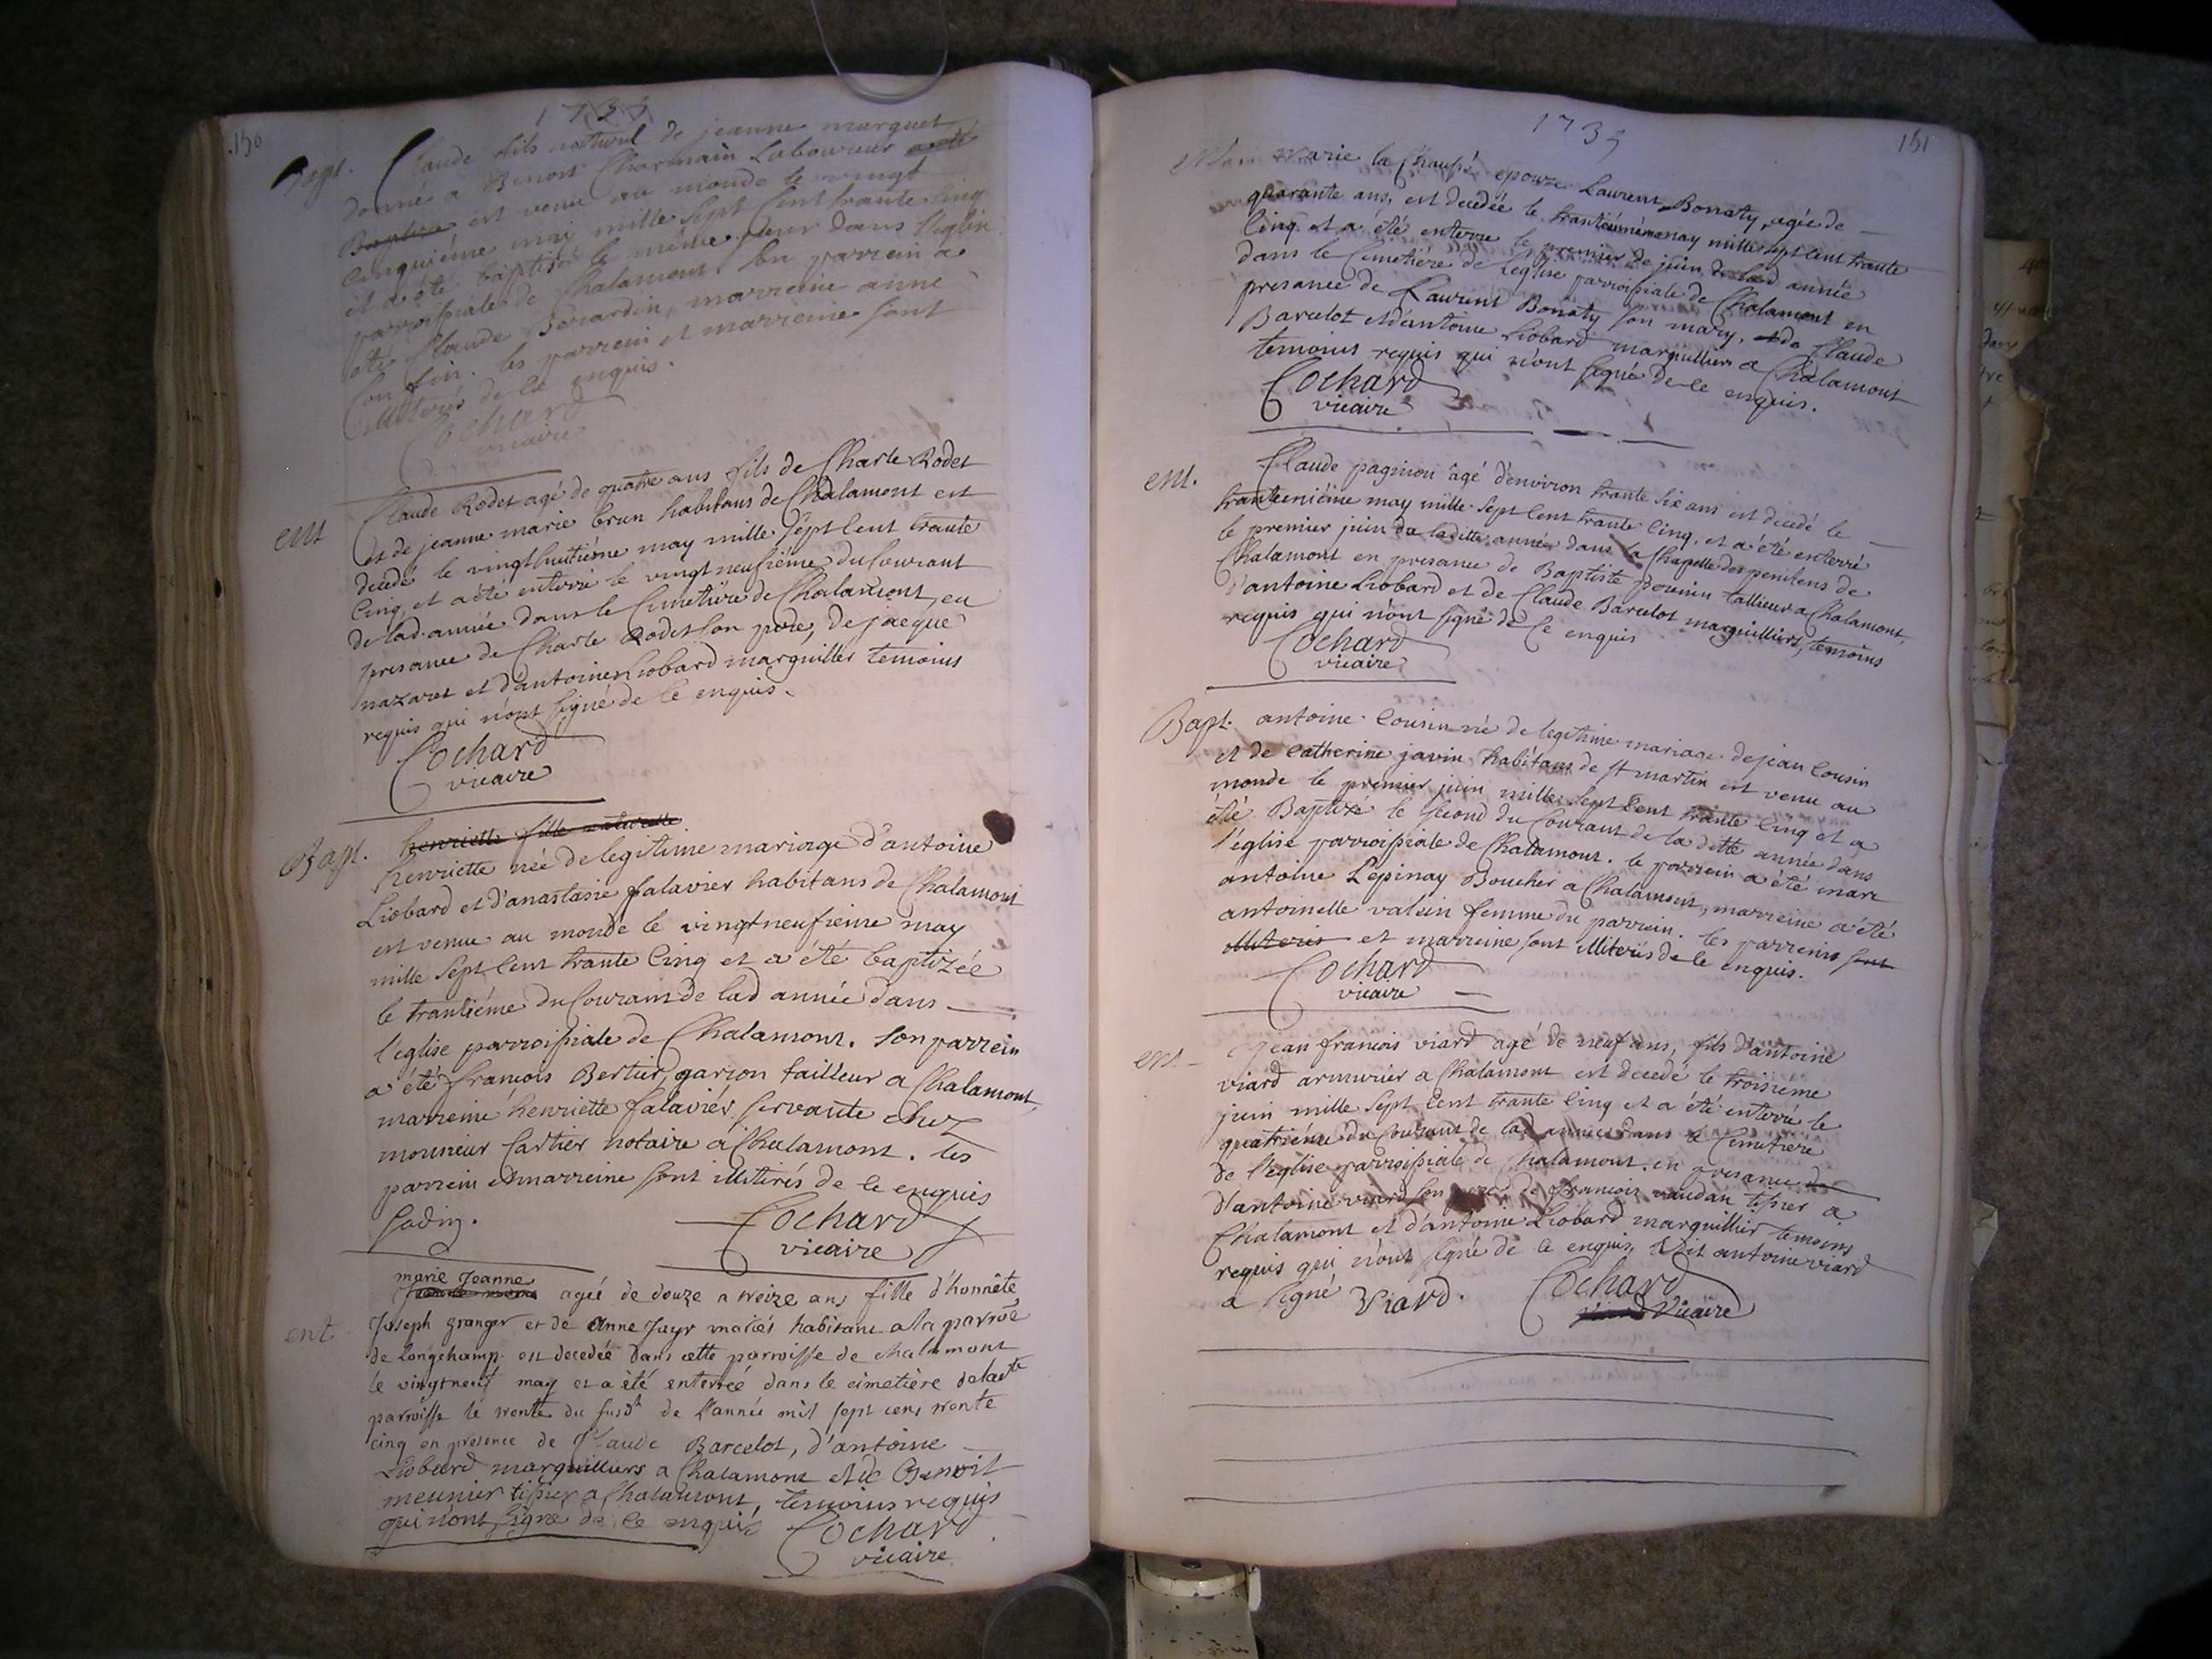 150
1735
Bapt. Claude fils naturel de jeanne marguet
donné a Benoit Charmain Laboureur
Baptisé est venu au monde le vingt
cinquiéme may mille sept cent trante cinq
et a été baptisé le même jour dans l'eglise
parroissiale de Chalamont. son parrein a
été Claude Berardin, marreine anne
Confin. les parrein et marreine sont
illiterés de ce enquis.
Cochard
vicaire
ent Claude Rodet agé de quatre ans fils de Charle Rodet
et de jeanne marie brun habitans de Chalamont est
decedé le vingthuitiéme may mille sept cent trante
cinq, et a été enterré le vingt neufiéme du courant
de lad. année dans le Cimetiére de Chalamont, en
presance de Charle Rodet son pere, de jacque
nazaret et d'antoine Liobard marguiller temoins
requis qui n'ont signé de ce enquis.
Cochard
vicaire
henriette fille naturelle
Bapt. henriette née de legitime mariage d'antoine
Liobard et d'anastasie falavier habitans de Chalamont
est venue au monde le vingt neufieme may
mille sept cent trante cinq et a été baptizée
le trantiéme du courant de lad année dans
l'eglise parroissiale de Chalamont. son parrein
a été francois Bertier, garçon tailleur a Chalamont,
marreine henriette falaviér servante chez
monsieur Cartier notaire a Chalamont. les
parrein et marreine sont illiterés de ce enquis
Cochard
vicaire
marie Joanne
ent. agée de douze a treize ans fille d'honnête
Joseph granger et de Anne Jayr mariés habitans a la parroë
de Longchamp est decedée dans cette parroisse de chalamont
le vingtneuf may et a été enterrée dans le cimetière de ladte
parroisse le trente du susdt de l'année mil sept cens trente
cinq en presence de Claude Barcelot, d'antoine
Liobard marguilliers a Chalamont et de Benoit
meunier tissier a Chalamont, temoins requis
qui n'ont signé de ce enquis
Cochard
vicaire
1735
151
Marie la Chaupé epouze Laurent Bonaty, agée de
quarante ans, est decedée le trantiéunéme may mille sept cent trante
cinq et a été enterre le premier de juin de lad année
dans le Cimetiére de l'eglise parroissiale de Chalamont en
presance de Laurent Bonaty son mary, et de Claude
Barcelot et d'antoine Liobard marguilliers a Chalamont
temoins requis qui n'ont signé de ce enquis.
Cochard
vicaire
ent. Claude paginon agé d'environ trante six ans est decedé le
tranteuniéme may mille sept cent trante cinq, et a été enterré
le premier juin de laditte année dans la Chapelle des penitens de
Chalamont en presance de Baptiste tallieur a Chalamont,
d'antoine Liobard et de Claude Barcelot marguilliers, temoins
requis qui n'ont signé de ce enquis
Cochard
vicaire
Bapt. antoine Cousin né de legitime mariage de jean Cousin
et de Catherine javin habitans de st martin est venu au
monde le premier juin mille sept cent trante cinq et a
été Baptizé le second du Courant de la ditte année dans
l'église parroissiale de Chalamont. le parrein a été marc
antoine Lépinay Boucher a Chalamont, marreine a été
antoinette valein femme du parrein. les parreins sont
illiterés et marreine sont illiterés de ce enquis.
Cochard
vicaire
ent. jean francois viard agé de neuf ans, fils d'antoine
viard armurier a Chalamont est decedé le troisiéme
juin mille sept cent trante cinq et a été enterré le
quatriéme du courant de lad année dans le Cemetiére
de l'eglise parroissiale de Chalamont. en presance de
d'antoine viard son pere, de francois vaudan tissier a
Chalamont et d'antoine Liobard marguillier temoins
requis qui n'ont signé de ce enquis, led it antoine viard
a signé Viard. Cochard
Vicaire